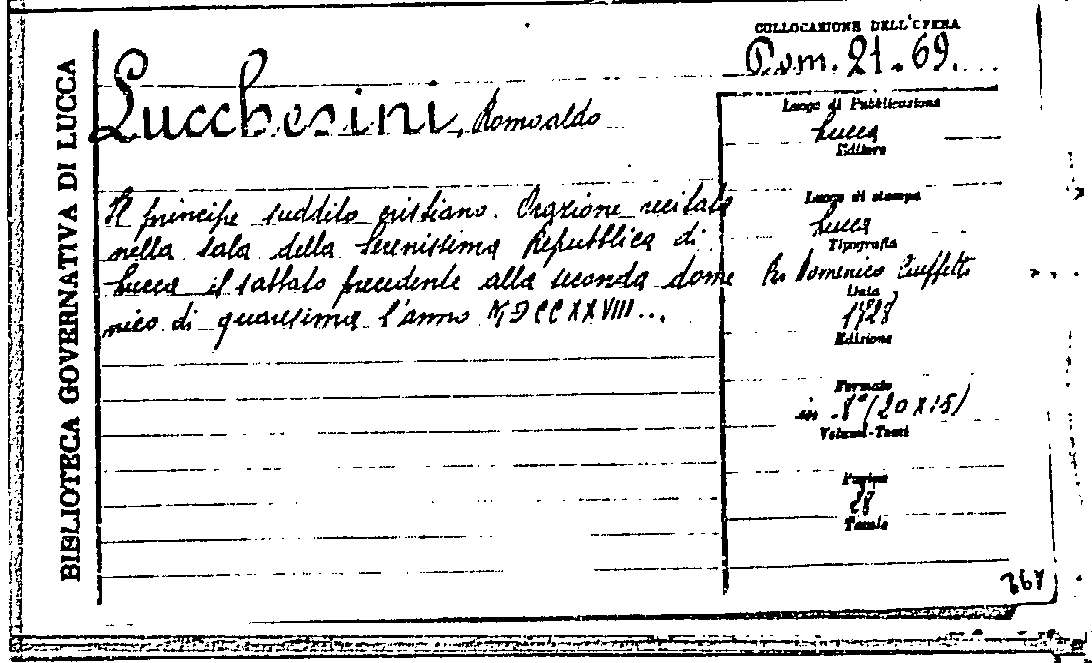 BIBLIOTECA GOVERNATIVA DI LUCCA
COLLOCAZIONE DELL'OPERA
21.69.
Lucchesini, Romualdo
Il principe suddito cristiano. Orazione recitata
nella sala della Serenissima Repubblica di
Lucca il sabbato precedente alla seconda dome
nica di quaresima l'anno MDCCXXVIII...
Luogo di Pubblicazione
Lucca
Editore
Luogo di stampa
Lucca
Tipografia
Domenico Ciuffetti
Data
1728
Edizione
Formato
in 8° (20x15)
Volumi-Tomi
Pagine
28
Tavole